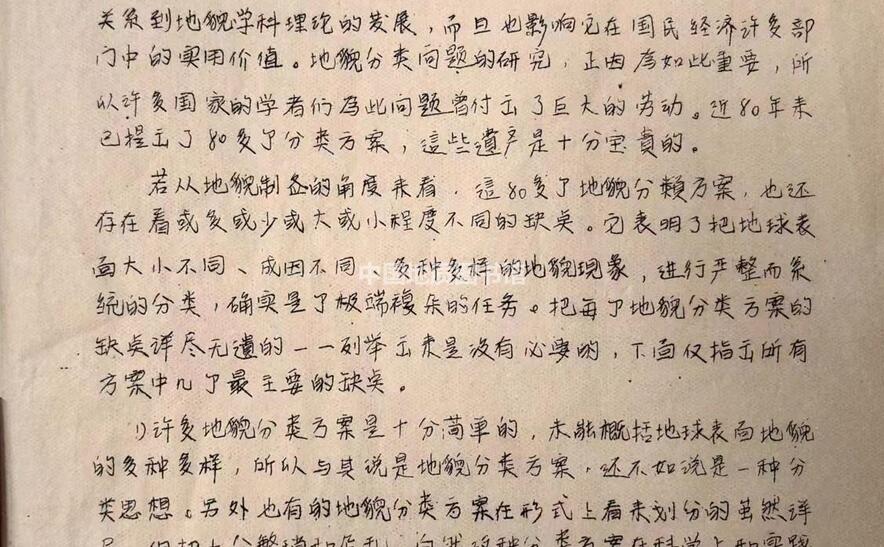 关系到地貌学科理论的发展，而且也影响它在国民经济许多部
门中的实用价值。地貌分类问题的研究，正因为如此重要，所
以许多国家的学者们为此问题曾付出了巨大的劳动。近80年来
已提出了80多个分类方案，這些遺产是十分宝貴的。
若从地貌制图的角度来看，這80多个地貌分類方案，也还
存在着或多或少或大或小程度不同的缺点。它表明了把地球表
面大小不同、成因不同、多种多样的地貌现象，进行严整而系
统的分类，确实是个极端複杂的任务。把每个地貌分类方案的
缺点详尽无遺的一一列举出来是没有必要的，下面仅指出所有
方案中几个最主要的缺点。
1)许多地貌分类方案是十分简单的，未能概括地球表面地貌
的多种多样，所以与其说是地貌分类方案，还不如说是一种分
类思想。另外也有的地貌分类方案在形式上看来划分的虽然详
这种分类方案在科学上和实践